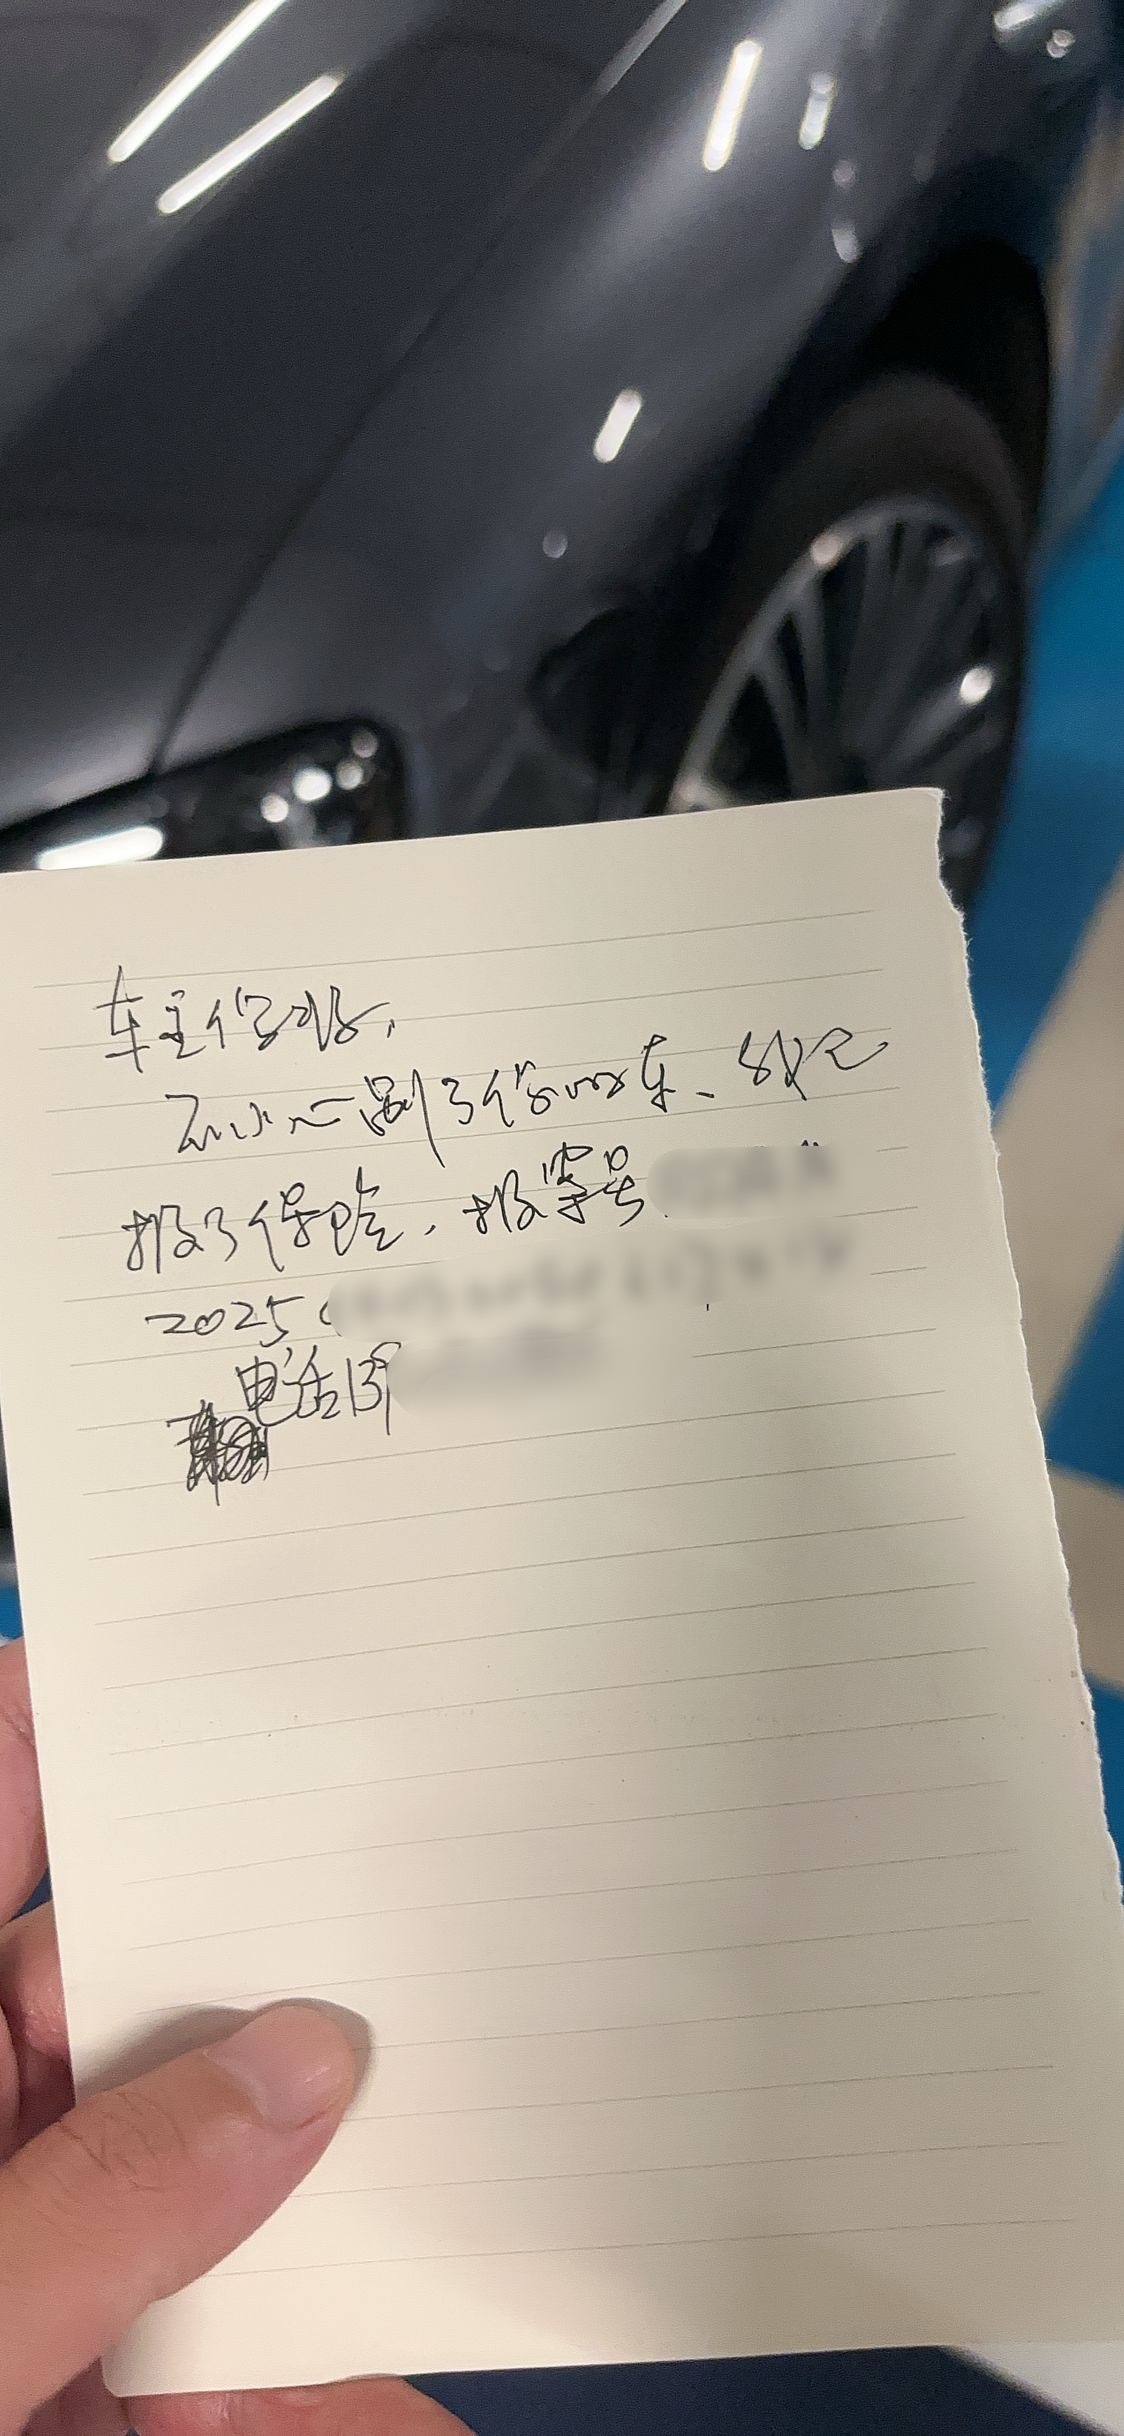 车主您好，
不小心剐了您的车、我已
报了保险，报案号
2025
电话139